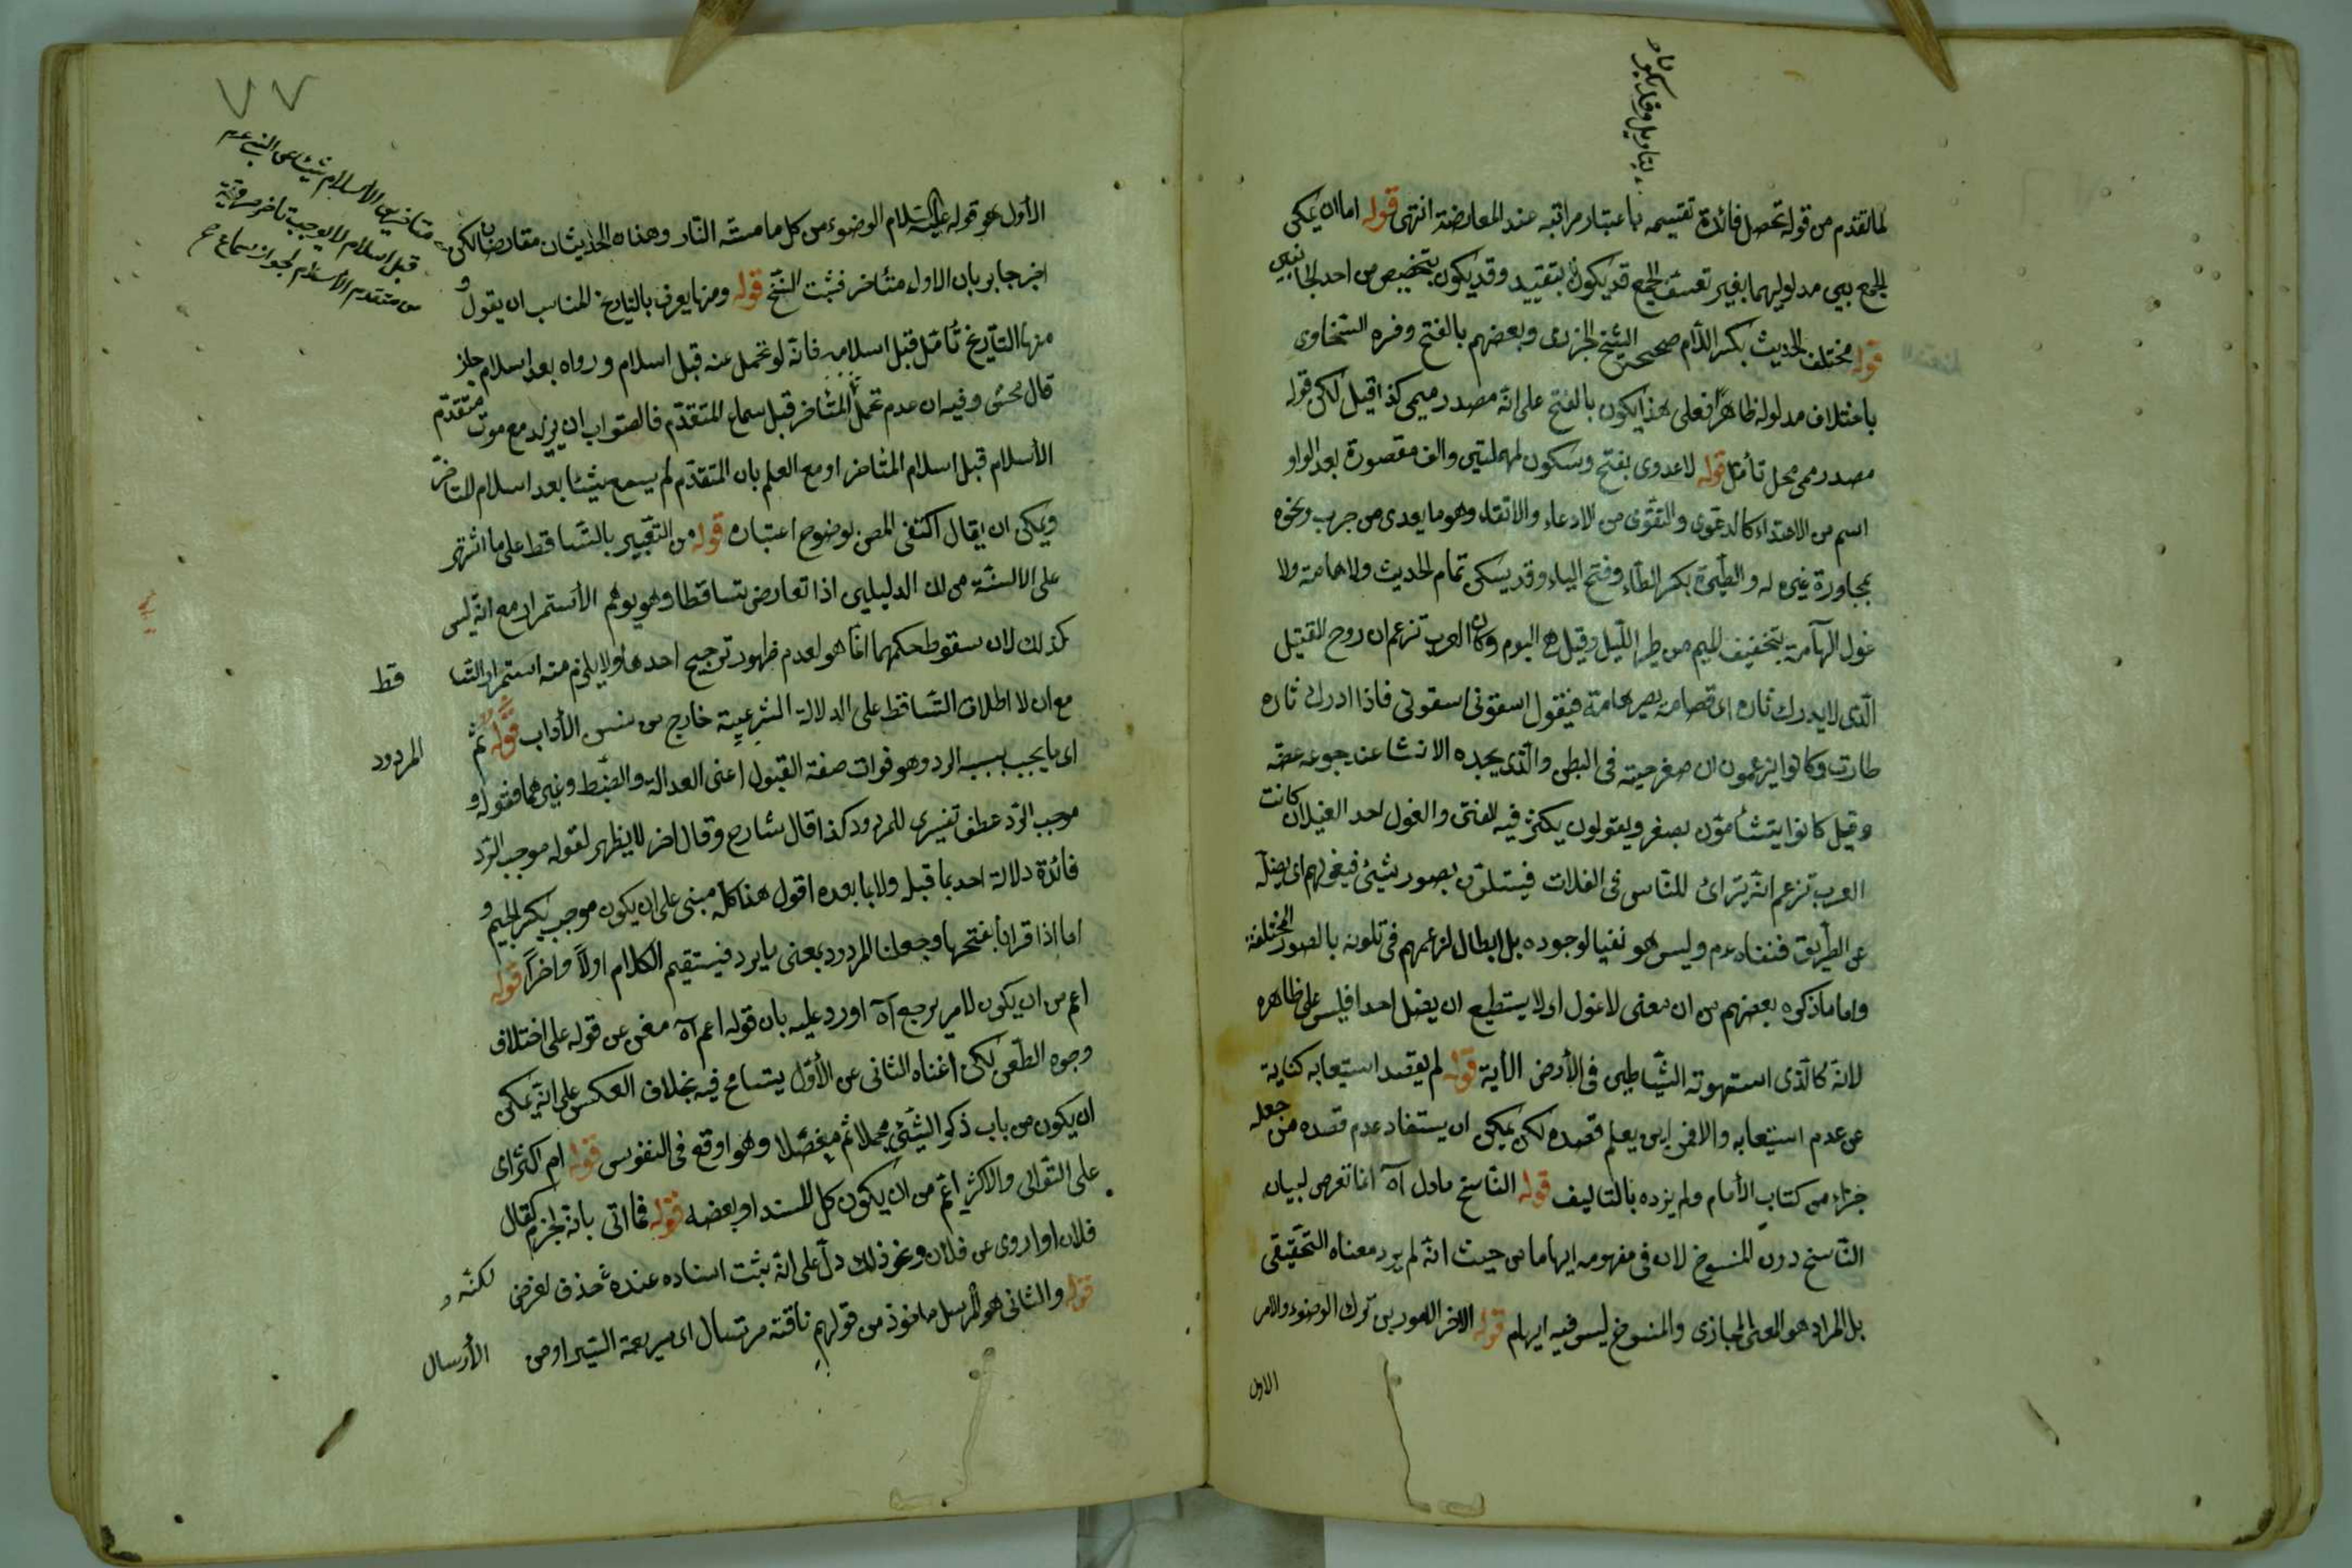 بتأويل وقد يكون
لما تقدم من قوله تحصل فائدة تقسيمه باعتبار مراتبه عند المعارضة انتهى قوله اما ان يمكن
الجمع بين مدلوليهما بغير تعسف الجمع قد يكون بتقييد وقد يكون بتخصيص من احد الجانبين
قوله مختلف الحديث بكسر اللام صححه الشيخ الجزرى وبعضهم بالفتح وفره السخاوى
باختلاف مدلوله ظاهرا فعلى هذا يكون بالفتح على انه مصدر ميمى كذا قيل لكن قوله
مصدر ميمى محل تأمل قوله لا عدوى بفتح وسكون المهملتين والف مقصورة بعد الواو
اسم من الاعتداء كالدعوى والتقوى من الادعاء والاتقاء وهو ما يعدى من جرب ونحوه
بمجاورة غيره له والطيرة بكسر الطاء وفتح الياء وقد يسكن تمام الحديث ولا هامة ولا
غول الهامة بتخفيف الميم من طير الليل وقيل هى البوم وكان العرب تزعم ان روح القتيل
الذى لا يدرك ثاره اى قصاصه يصير هامة فيقول اسقونى اسقونى فاذا ادرك ثاره
طارت وكانوا يزعمون ان صفر حية فى البطن والذى يجده الانسان عند جوعه عضه
وقيل كانوا يتشأمون بصفر ويقولون يكثر فيه الفتن والغول احد الغيلان كانت
العرب تزعم انه يترائ للناس فى الفلات فيتلون بصور شيئ فيغولهم اى يضله
عن الطريق فنفاه عم وليس هو نفيا لوجوده بل ابطال لزعمهم فى تلونه بالصور المختلفة
واما ما ذكره بعضهم من ان معنى لا غول او لا يستطيع ان يضل احدا فليس على ظاهره
لانه كالذى استهوته الشياطين فى الأرض الأية قوله لم يقصد استيعابه كناية
عن عدم استيعابه والا فمن اين يعلم قصده لكن يمكن ان يستفاد عدم قصده من جعله
جزاء من كتاب الأمام ولم يزده بالتاليف قوله الناسخ مادل آه انما تعرض لبيان
الناسخ دون المنسوخ لان فى مفهومه ايهاما من حيث انه لم يرد معناه التحقيقى
بل المراد هو المعنى المجازى والمنسوخ ليس فيه ايهام قوله الاخر الامور بن ترك الوضوء والامر
الاول
٧٧
متأخر الأسلام شيئا عن النبى عم
قبل اسلام لا يوجب تأخر مروية
من متقدم الأسلام لجواز سماع
الأول هو قوله عليه السلام الوضوء من كل ما مسته النار وهذان الحديثان متعارضان لكن
اخبر جابر بان الاول متأخر فثبت النسخ قوله ومنها يعرف بالتاريخ المناسب ان يقول و
منها التأريخ تأمل قبل اسلامه فانه لو تحمل عنه قبل اسلام ورواه بعد اسلام جاز
قال محشى وفيه ان عدم تحمل المتأخر قبل سماع المتقدم فالصواب ان يزيد مع موت متقدم
الأسلام قبل اسلام المتأخر او مع العلم بان المتقدم لم يسمع شيئا بعد اسلام المتاخر
ويمكن ان يقال اكتفى المص لوضوح اعتباره قوله من التعبير بالتساقط على ما اشتهر
على الالسنة من ان الدليلين اذا تعارض تساقطا وهو يوهم الأستمرار مع انه ليس
كذلك لان سقوط حكمهما انما هو لعدم ظهور ترجيح احدهما ولا يلزم منه استمرار التسا قط
مع ان لا اطلاق التساقط على الدلالة الشرعية خارج من سنن الأداب قوله ثم المردود
اى ما يجب بسبب الرد وهو فوات صفة القبول اعنى العدالة والضبط وغيرهما فقوله و
موجب الرد عطف تفسيرى للمردود كذا قال شارح وقال اخر لا يظهر لقوله موجب الرد
فائدة دلالة احد بما قبله ولا بما بعده اقول هذا كله مبنى على ان يكون موجب بكسر الجيم و
اما اذا قرأنا بفتحها وجعلنا المردود بمعنى ما يرد فيستقيم الكلام اولا واخرا قوله
اعم من ان يكون لامر يرجع آه اورد عليه بان قوله اعم آه مغن عن قوله على اختلاف
وجوه الطعن لكن اغناه الثانى عن الأول يتسامح فيه بخلاف العكس على انه يمكن
ان يكون من باب ذكر الشيئ مجملا ثم مفصلا وهو اوقع فى النفوس قوله ام اكثر اى
على التوالى والاكثر اعم من ان يكون كل المسند او بعضه قوله فما اتى بانه لجزم كقال
فلان او اروى عن فلان ونحو ذلك دل على انه يثبت اسناده عنده حذف لغرض لكنه و
قوله والثانى هو المرسل ماخوذ من قولهم ناقة مرسال اى سريعة السير او من الأرسال